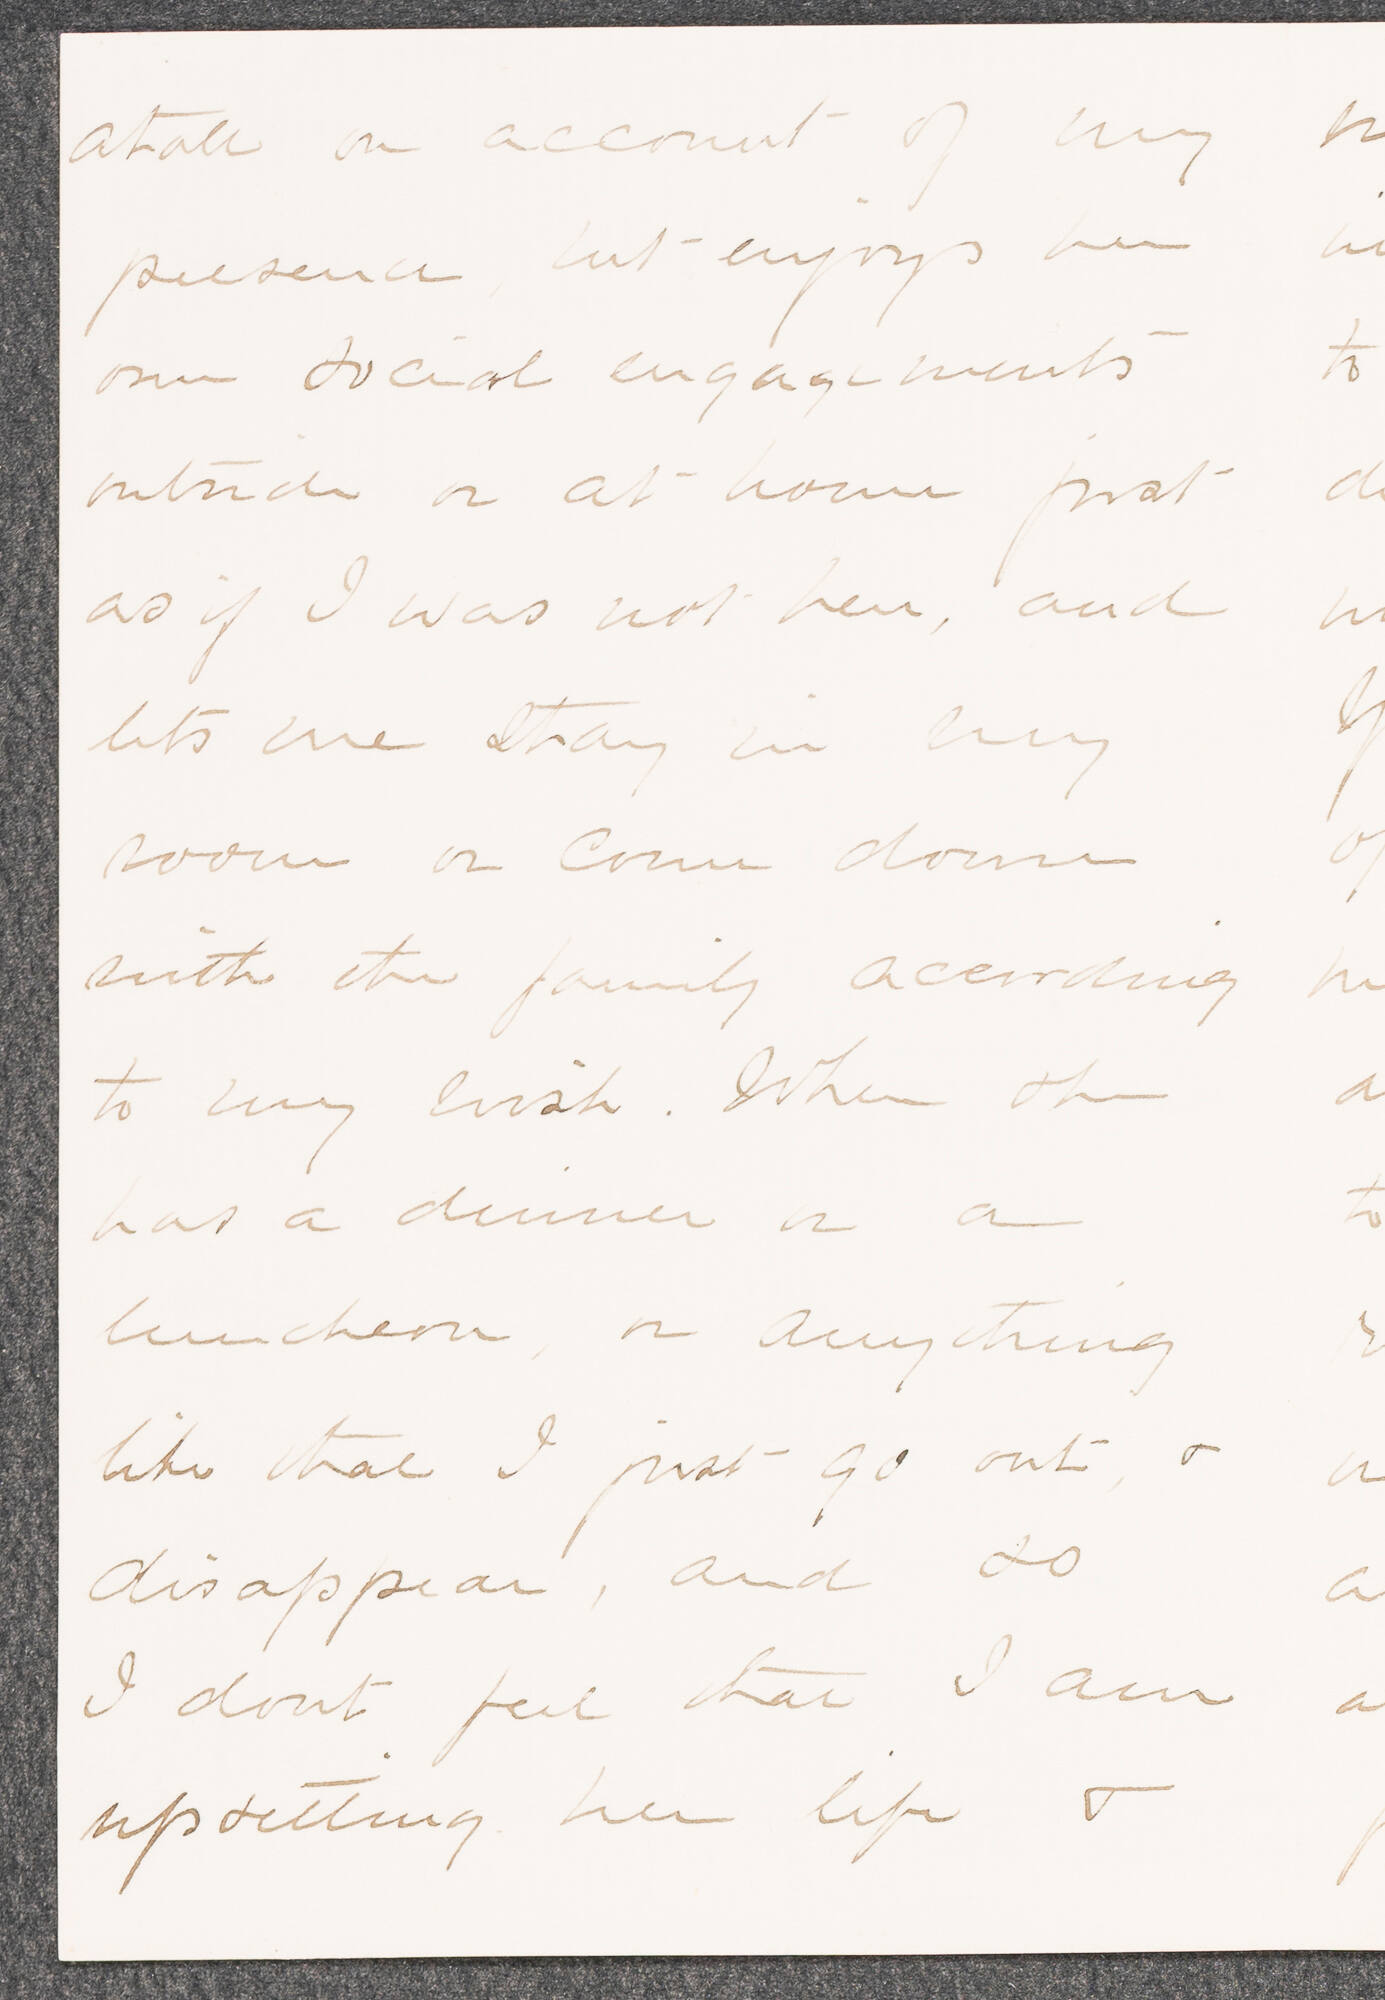 at all on account of my
presence, but enjoys her
own social engagements
outside or at home just
as if I was not here, and
lets me stay in my
room or come down
with the family according
to my wish. When she
has a dinner or a
luncheon, or anything
like that I just go out, &
disappear, and so
I dont feel that I am
upsetting her life &
to
to